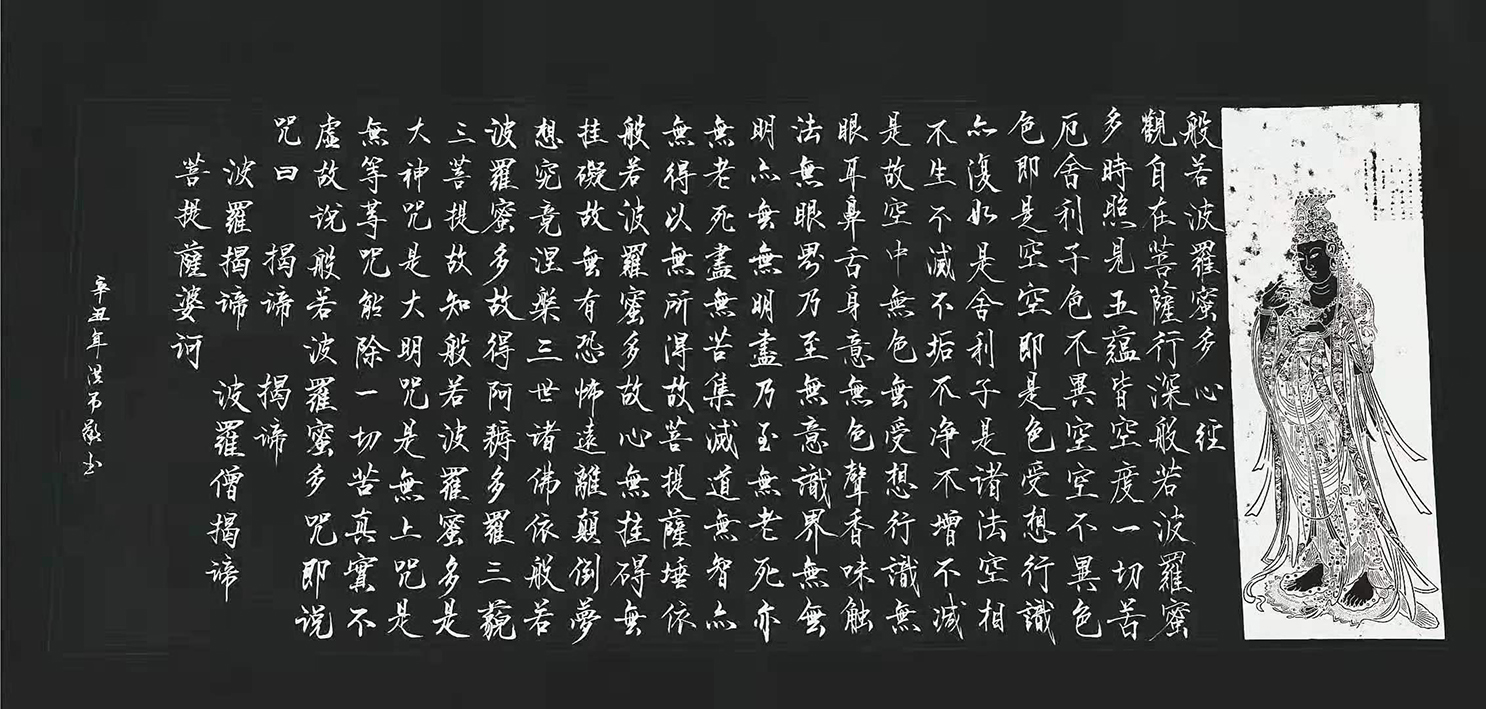 般若波羅蜜多心经
觀自在菩薩行深般若波羅蜜
多時照見五蕴皆空度一切苦
厄舍利子色不異空空不異色
色即是空空即是色受想行識
亦復如是舍利子是諸法空相
不生不滅不垢不净不增不減
是故空中無色無受想行識無
眼耳鼻舌身意無色聲香味触
法無眼界乃至無意識界無無
明亦無無明盡乃至無老死亦
無老死盡無苦集滅道無智亦
無得以無所得故菩提薩埵依
般若波羅蜜多故心無挂碍無
挂礙故無有恐怖遠離顛倒夢
想究竟涅槃三世诸佛依般若
波羅蜜多故得阿耨多羅三藐
三菩提故知般若波羅蜜多是
大神咒是大明咒是無上咒是
無等等咒能除一切苦真實不
虚故说般若波羅蜜多咒即说
咒曰 揭谛 揭谛
波羅揭谛 波羅僧揭谛
菩提薩婆诃
辛丑年 敬书